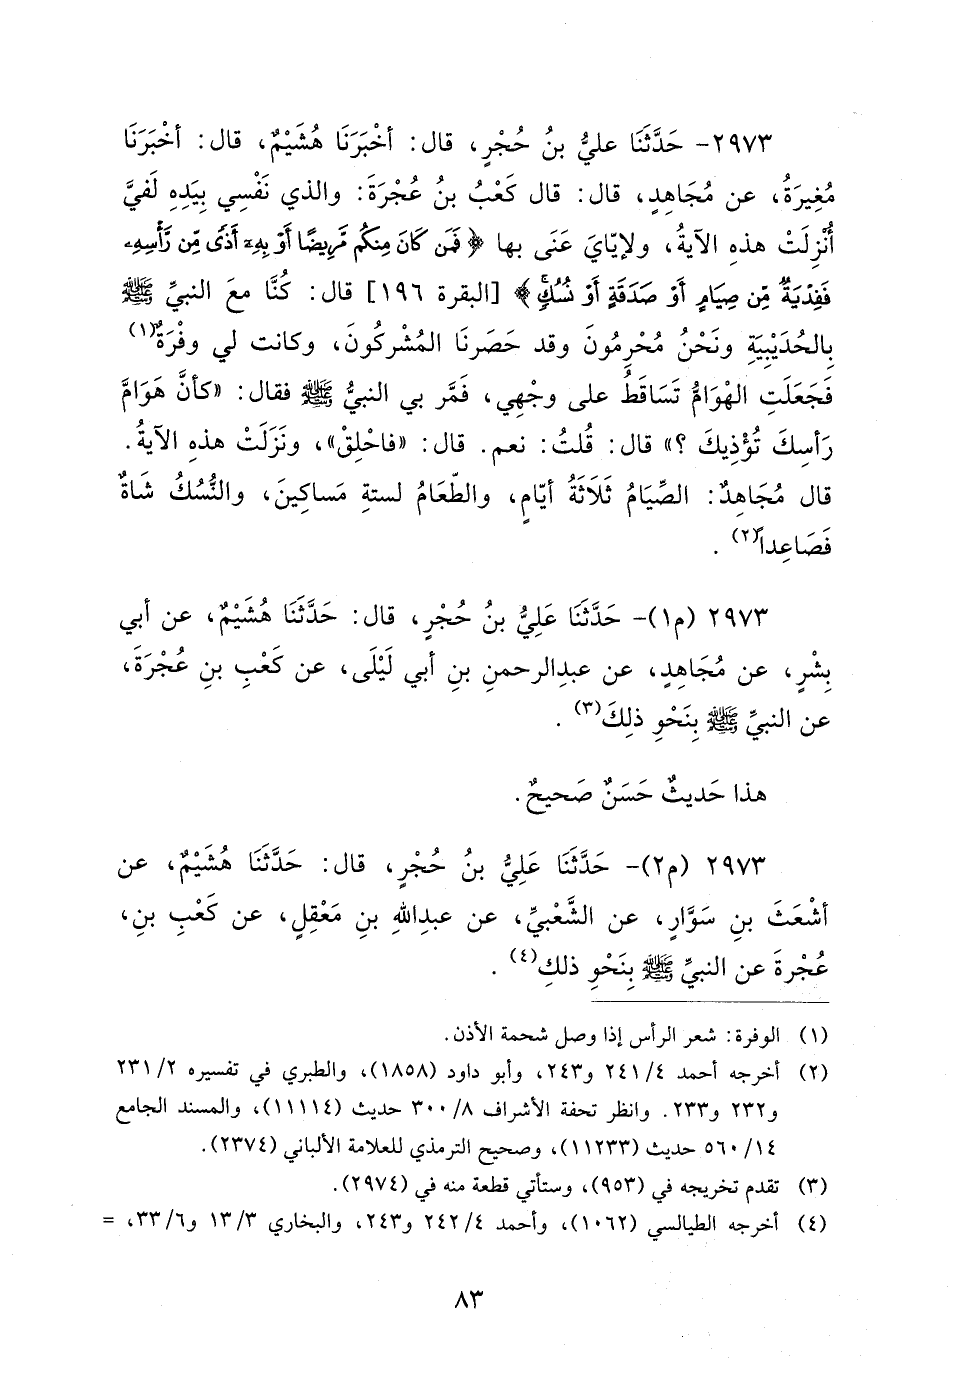 ٢٩٧٣- حَدَّثَنَا عليُّ بنُ حُجْرٍ، قال: أخْبَرَنَا هُشَيْمٌ، قال: أخْبَرَنَا
مُغِيرَةُ، عن مُجَاهِدٍ، قال: قال كَعْبُ بنُ عُجْرَةَ: والذي نَفْسِي بِيَدِهِ لَفيَّ
أُنْزِلَتْ هذهِ الآيةُ، ولإيّايَ عَنَى بها ﴿فَمَن كَانَ مِنكُم مَّرِيضًا أَوْ بِهِۦٓ أَذًى مِّن رَّأْسِهِۦ
فَفِدْيَةٌ مِّن صِيَامٍ أَوْ صَدَقَةٍ أَوْ نُسُكٍۚ﴾ [البقرة ١٩٦] قال: كُنَّا معَ النبيِّ ﷺ
بِالحُدَيْبِيَةِ ونَحْنُ مُحْرِمُونَ وقد حَصَرنَا المُشْركُونَ، وكانت لي وفْرَةٌ(١)
فَجَعَلَتِ الهْوَامُّ تَسَاقَطُ على وجْهِي، فَمَّر بي النبيُّ ﷺ فقال: «كأنَّ هَوَامَّ
رَأسِكَ تُؤْذِيكَ؟» قال: قُلتُ: نعم. قال: «فاحْلِقْ»، ونَزَلَتْ هذهِ الآيةُ.
قال مُجَاهِدٌ: الصِّيَامُ ثَلَاثَةُ أيّامٍ، والطّعَامُ لستةِ مَساكِينَ، والنُّسُكُ شَاةٌ
فَصَاعِداً(٢).
٢٩٧٣ (م١)- حَدَّثَنَا عَلِيُّ بنُ حُجْرٍ، قال: حَدَّثَنَا هُشَيْمٌ، عن أبي
بِشْرٍ، عن مُجَاهِدٍ، عن عبدِالرحمنِ بنِ أبي لَيْلَى، عن كَعْبِ بنِ عُجْرَةَ،
عن النبيِّ ﷺ بِنَحْوِ ذلِكَ(٣).
هذا حَديثٌ حَسَنٌ صَحيحٌ.
٢٩٧٣ (م٢)- حَدَّثَنَا عَلِيُّ بنُ حُجْرٍ، قال: حَدَّثَنَا هُشَيْمٌ، عن
أشْعَثَ بنِ سَوَّارٍ، عن الشَّعْبيِّ، عن عبدِاللهِ بنِ مَعْقِلٍ، عن كَعْبِ بنِ،
عُجْرةَ عن النبيِّ ﷺ بِنَحْوِ ذلكِ(٤).
(١) الوفرة: شعر الرأس إذا وصل شحمة الأذن.
(٢) أخرجه أحمد ٤/ ٢٤١ و٢٤٣، وأبو داود (١٨٥٨)، والطبري في تفسيره ٢/ ٢٣١
و٢٣٢ و٢٣٣. وانظر تحفة الأشراف ٨/ ٣٠٠ حديث (١١١١٤)، والمسند الجامع
١٤/ ٥٦٠ حديث (١١٢٣٣)، وصحيح الترمذي للعلامة الألباني (٢٣٧٤).
(٣) تقدم تخريجه في (٩٥٣)، وستأتي قطعة منه في (٢٩٧٤).
(٤) أخرجه الطيالسي (١٠٦٢)، وأحمد ٤/ ٢٤٢ و٢٤٣، والبخاري ٣/ ١٣ و٦/ ٣٣، =
٨٣